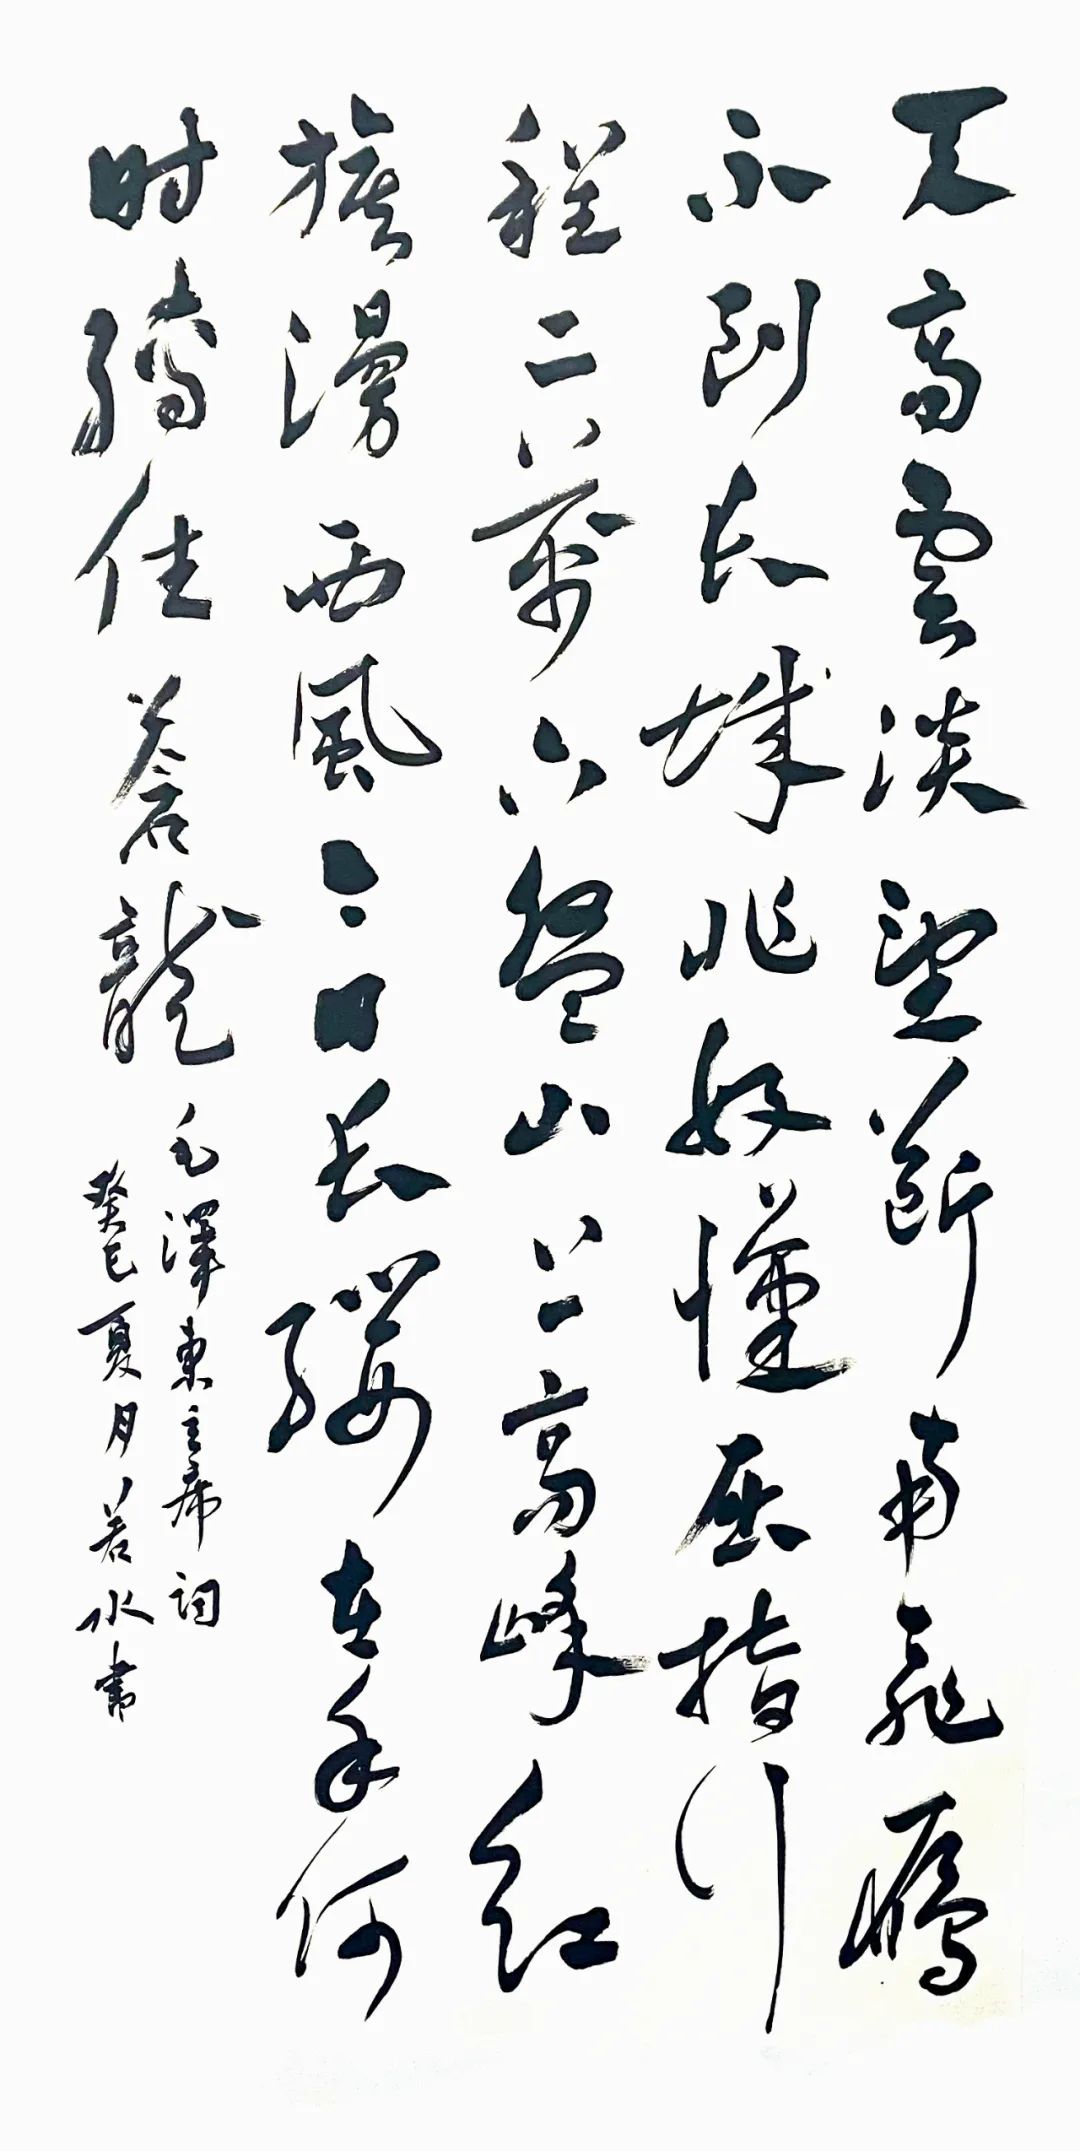 天高雲淡望斷南飛鴈
不到長城非好漢屈指行
程二萬六盤山上高峰紅
旗漫西風今日長纓在手何
时縛住蒼龍
毛澤東主席詞
癸巳夏月若水書